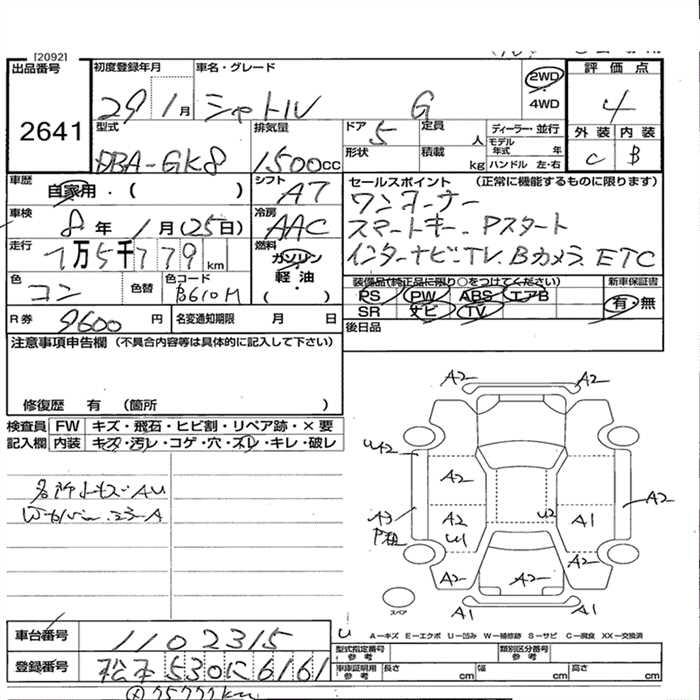 [2092]
出品番号
2641
初度登録年月
29 1月
車名・グレード
シャトル G
2WD
4WD
評価点
4
外装 内装
C B
型式
DBA-GK8
排気量
1500cc
ドア 5
定員 人
形状
積載 kg
ディーラー・並行
モデル年式 年
ハンドル 左・右
車歴
自家用・( )
シフト
AT
車検
8年 1月(25日)
冷房
AAC
走行
7万5千779km
燃料
ガソリン
軽・油
( )
色
コン
色替
色コード
B610M
R券 9600円
名変通知期限 月 日
セールスポイント (正常に機能するものに限ります)
ワンオーナー
スマートキー. Pスタート
インターナビ・TV. Bカメラ. ETC
装備品(純正品に限り○をつけてください)
PS PW ABS エアB
SR ナビ TV
新車保証書
有・無
後日品
注意事項申告欄 (不具合内容等は具体的に記入して下さい)
修復歴 有 (箇所 )
検査員記入欄
FW キズ・飛石・ヒビ割・リペア跡・×要
内装 キズ・汚レ・コゲ・穴・スレ・キレ・破レ
A2 A2
U2
A2
A2
A3
P粗
A2
U1
U2
A1
A2
A2
A2
A1 A1
スペア
U
A―キズ E―エクボ U―凹み W―補修跡 S―サビ C―腐食 XX―交換済
車台番号
1102315
登録番号
松本530に6161
型式指定番号 参考
類別区分番号 参考
車庫証明用 参考
長さ cm
幅 cm
高さ cm